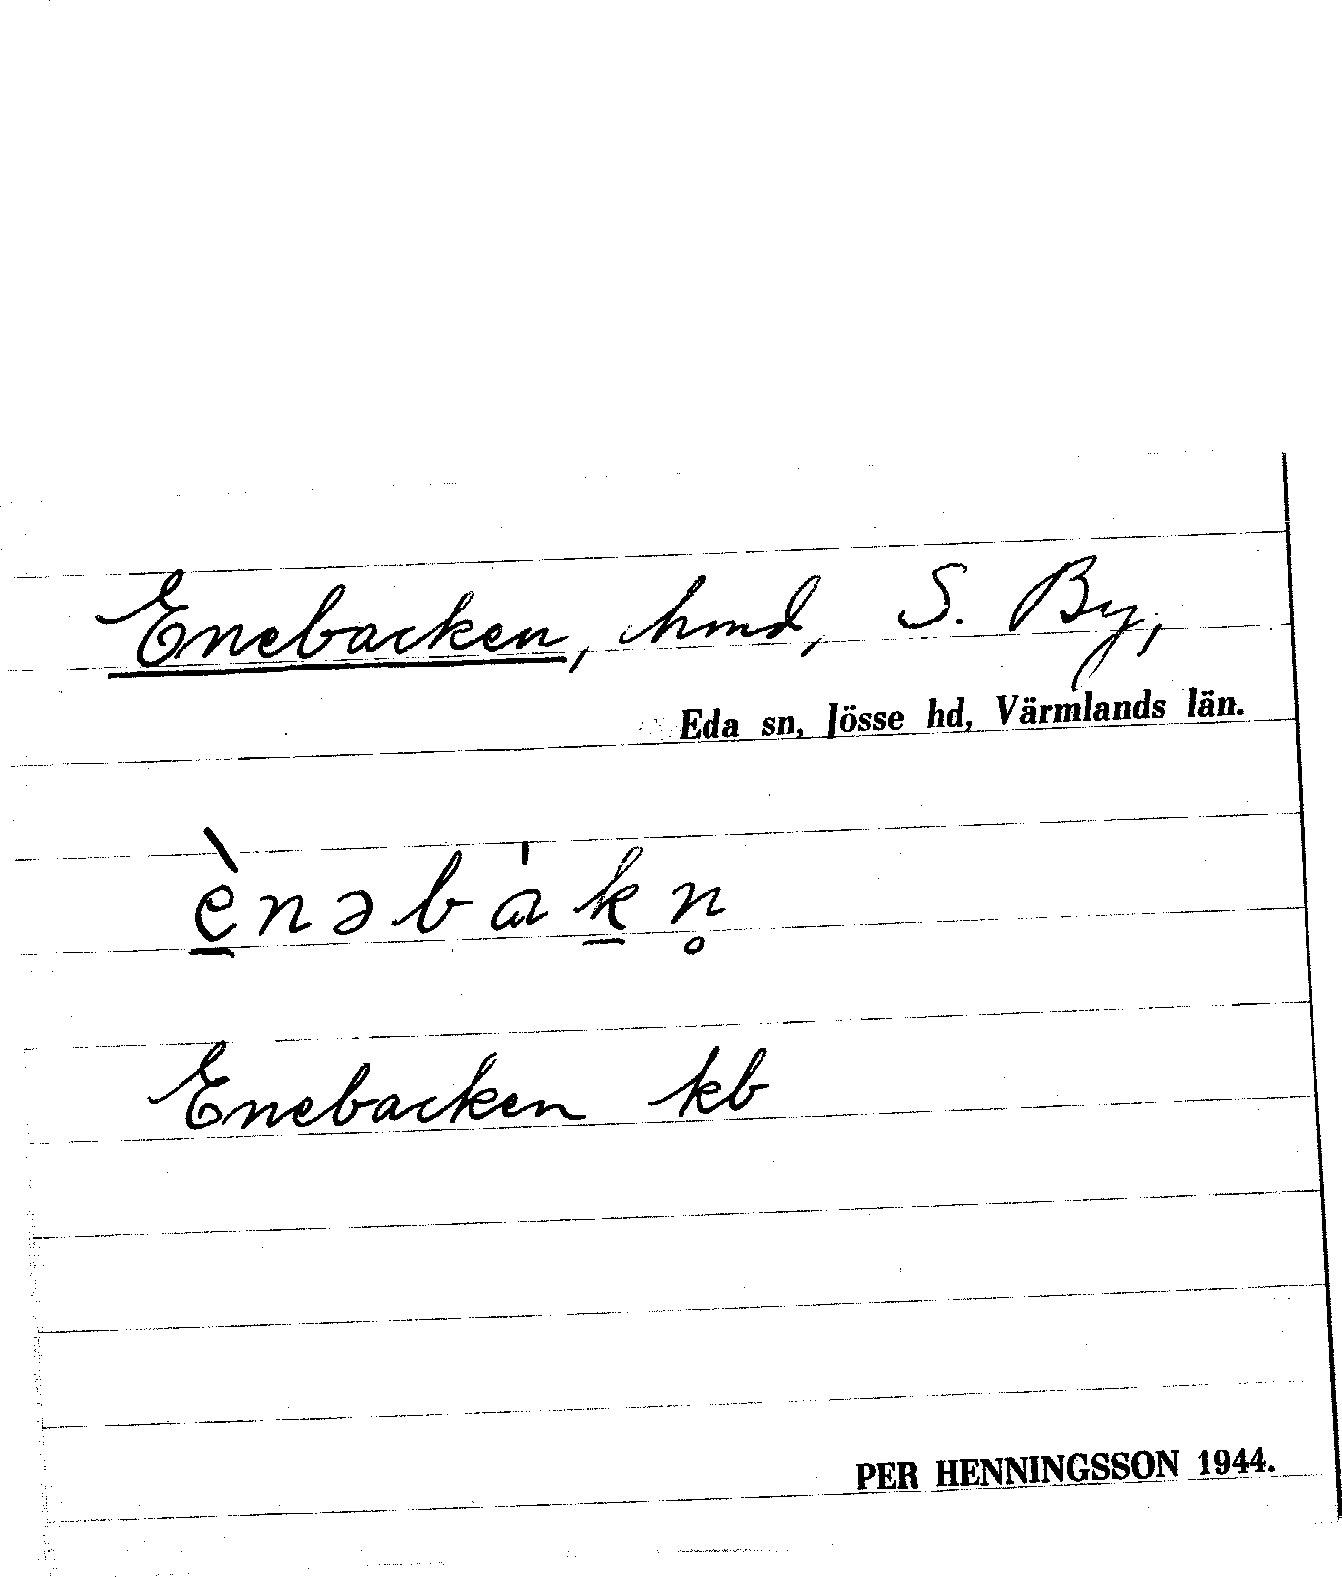 Enebacken, hmd, S. By,
Eda sn, Jösse hd, Värmlands län.
è̱nəbàḵn̥
Enebacken kb
PER HENNINGSSON 1944.